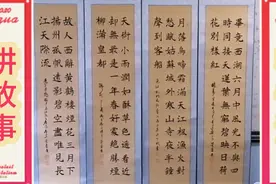 故事
畢竟西湖六月中風光不與四
時同接天蓮葉無窮碧映日荷
花別樣紅
月落烏啼霜滿天江楓漁火對
愁眠姑蘇城外寒山寺夜半鐘
聲到客船
天街小雨潤如酥草色遙看近
卻無最是一年春好處絕勝煙
柳滿皇都
故人西辭黃鶴樓煙花三月下
揚州孤帆遠影碧空盡唯見長
江天際流